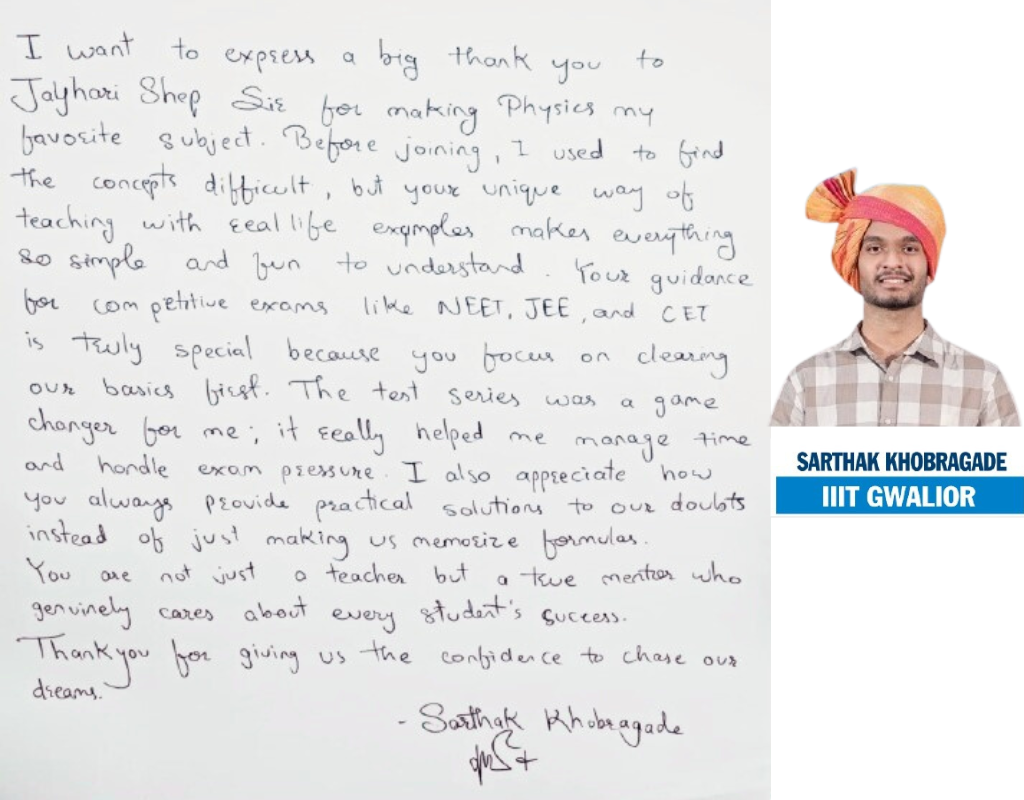 I want to express a big thank you to
Jayhari Shep Sir for making Physics my
favorite subject. Before joining, I used to find
the concepts difficult, but your unique way of
teaching with real life examples makes everything
so simple and fun to understand. Your guidance
for competitive exams like NEET, JEE, and CET
is truly special because you focus on clearing
our basics first. The test series was a game
changer for me; it really helped me manage time
and handle exam pressure. I also appreciate how
you always provide practical solutions to our doubts
instead of just making us memorize formulas.
You are not just a teacher but a true mentor who
genuinely cares about every student's success.
Thank you for giving us the confidence to chase our
dreams.
- Sarthak Khobragade
SARTHAK KHOBRAGADE
IIIT GWALIOR